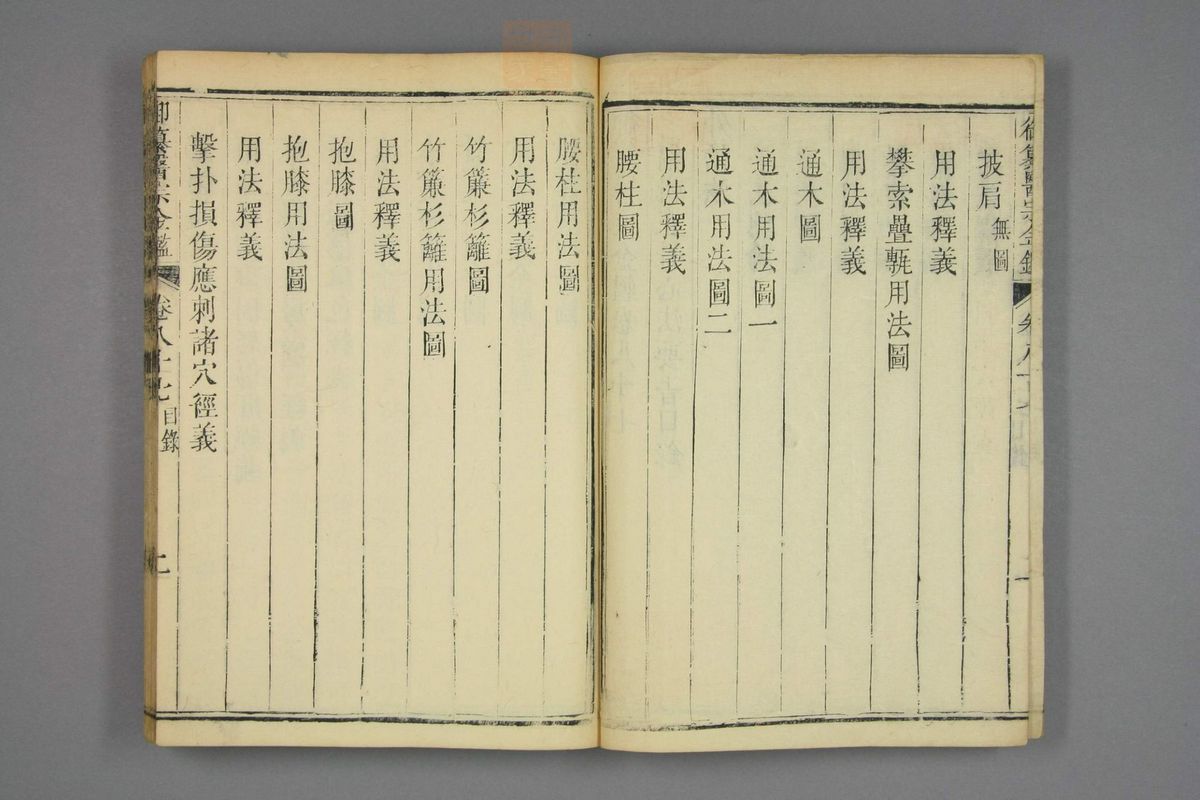 披肩無圖
用法釋義
攀索疊甎用法圖
用法釋義
通木圖
通木用法圖一
通木用法圖二
用法釋義
腰柱圖
腰柱用法圖
用法釋義
竹簾杉籬圖
竹簾杉籬用法圖
用法釋義
抱膝圖
抱膝用法圖
用法釋義
擊扑損傷應刺諸穴徑義
御纂醫宗金鑑 卷八十七 目錄